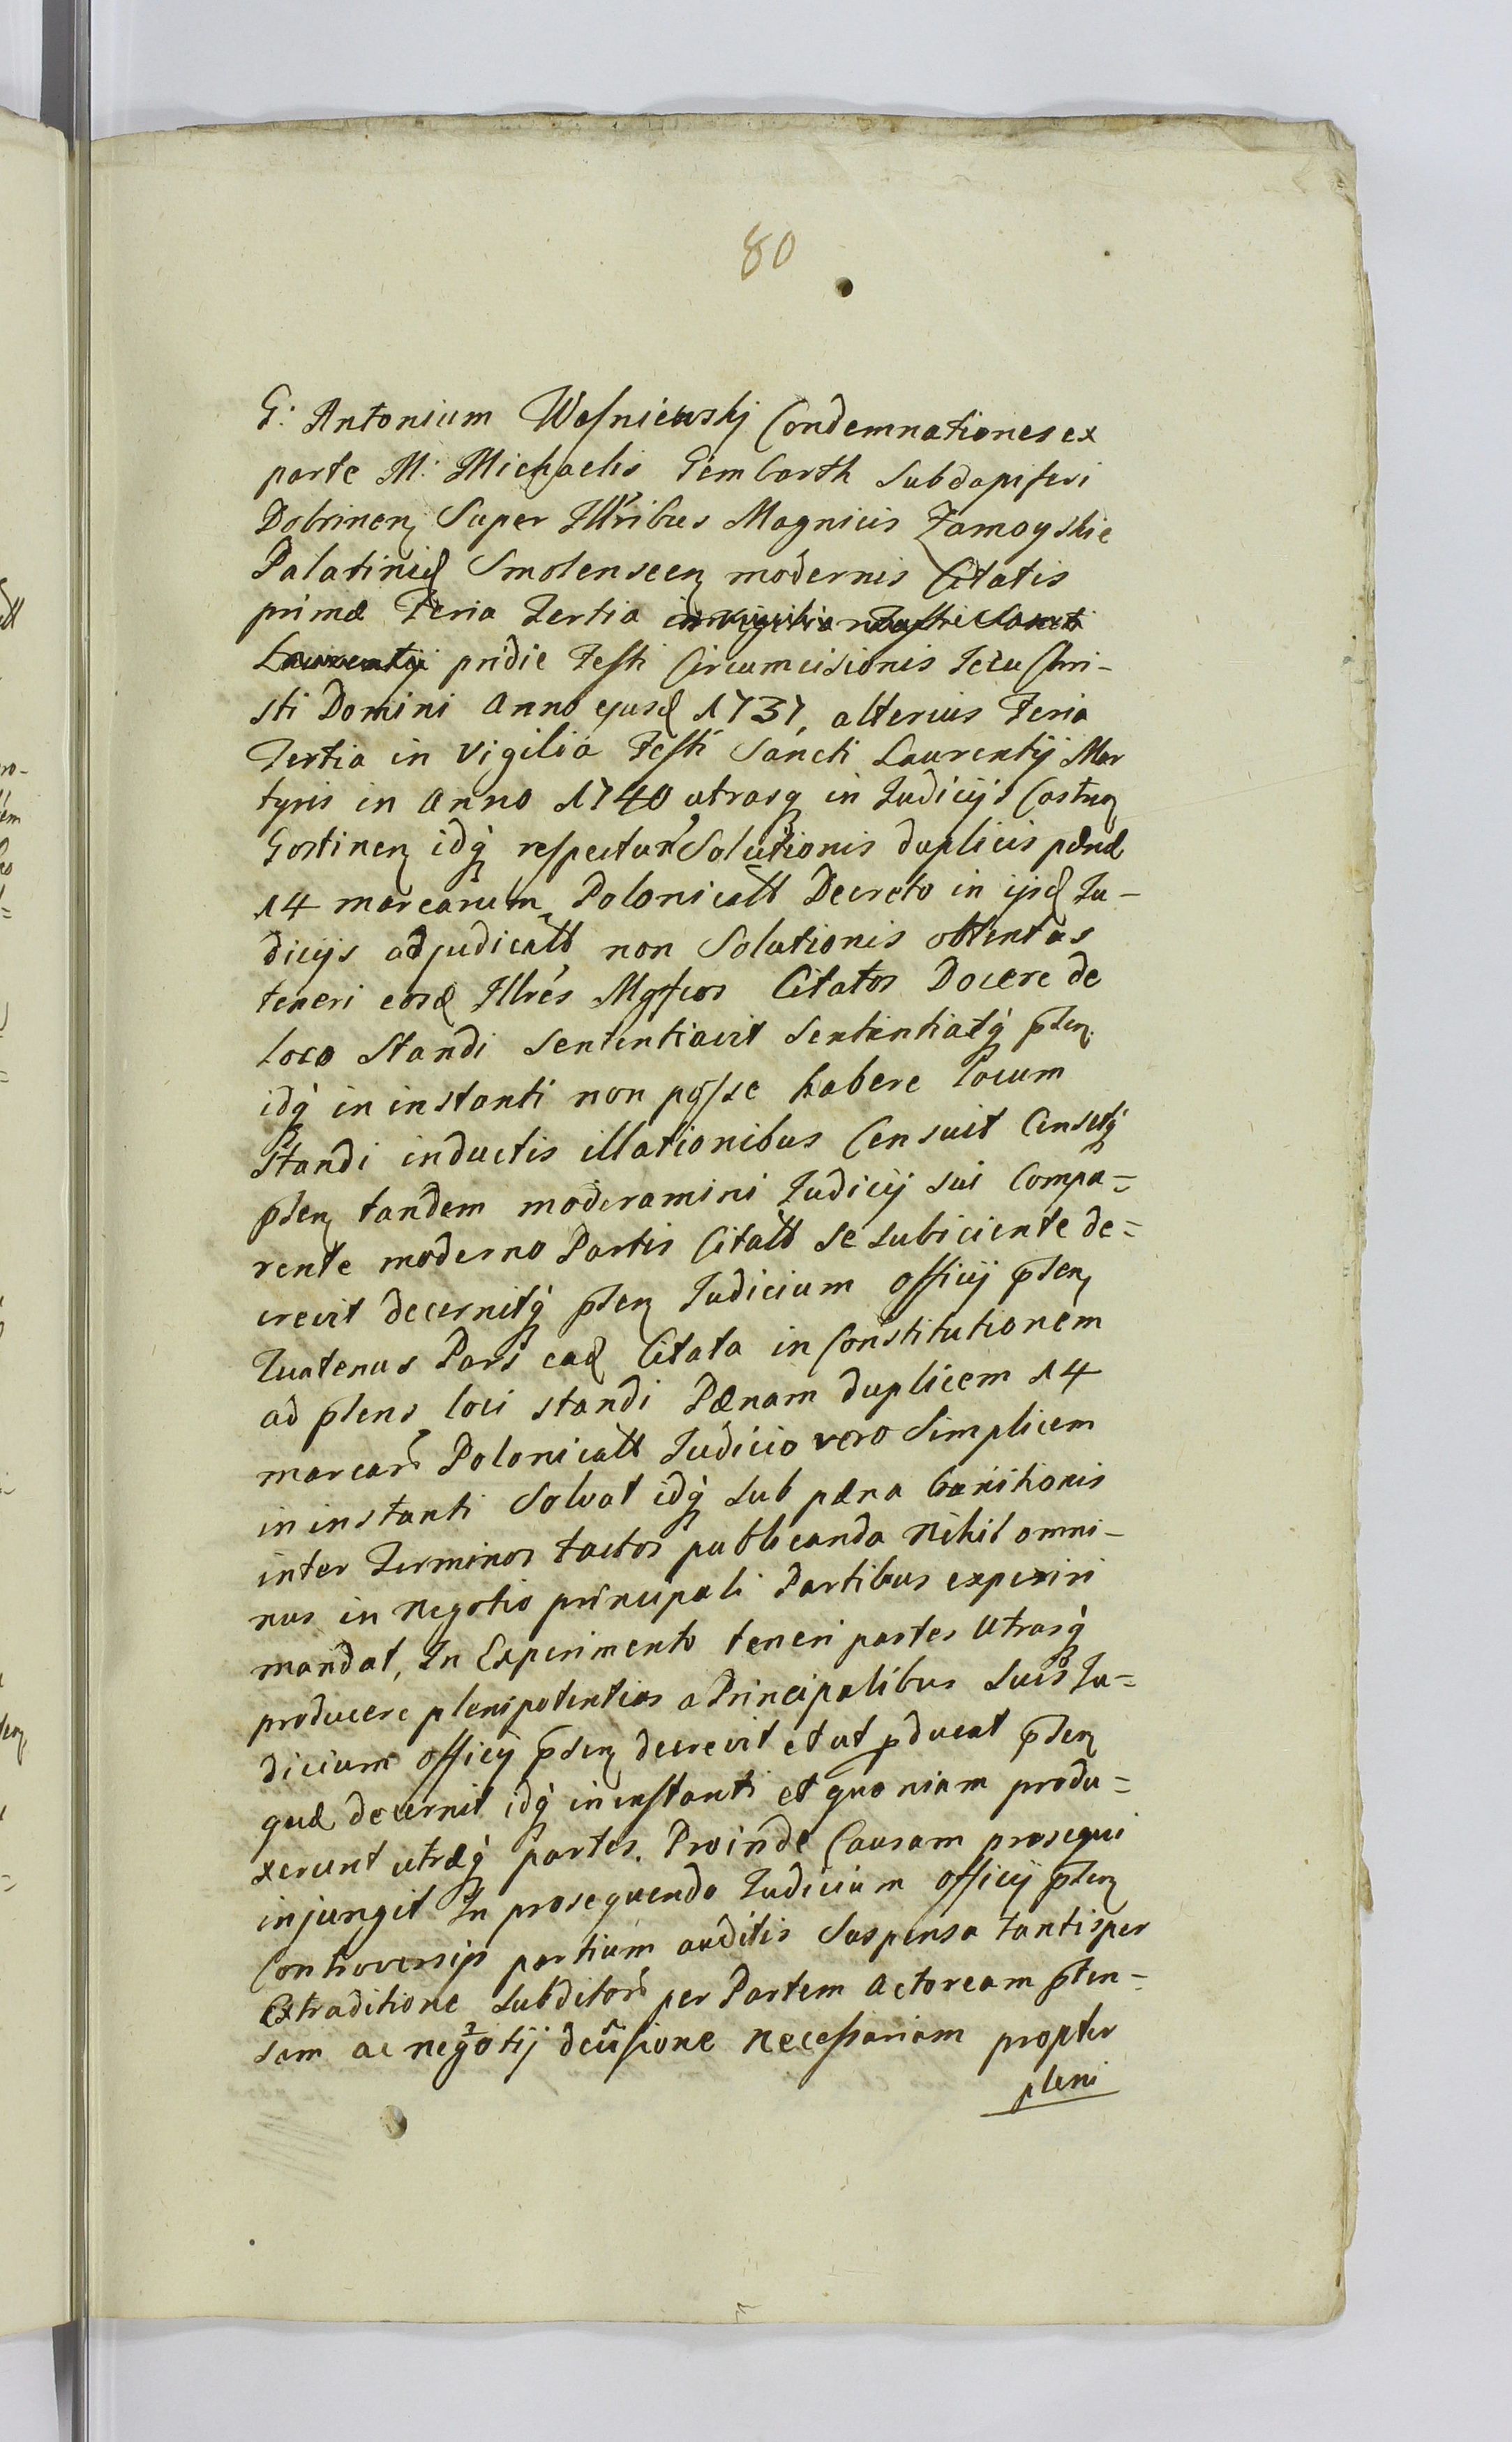 80
G: Antonium Wasniewskj Condemnationes ex
parte M: Michaelis Gembarth Subdapiferi
Dobrinen Super Illribus Magnicis Zamoyskie
Palatinid Smolenscen modernis Citatis
primæ Feria Tertia in vigilia Festi Sancti
Laurentij pridie Festi Circumcisionis Jesu Chri-
sti Domini Anno ejusd 1737, alterius Feria
Tertia in Vigilia Festi Sancti Laurentij Mar
tyris in Anno 1740 utrasq in Judicijs Castren
Gostinen idq respectu Solutionis duplicis pænæ
14 marcarum Polonicall Decreto in ijsd Ju-
dicijs adjudicall non Solutionis obtentas
teneri eosd Illres Mgfcos Citatos Docere de
loco Standi Sententiavit Sententiatq pten
idq in instanti non posse habere locum
Standi inductis illationibus Censuit Censetq
pten tandem moderamini Judicij sui Compa=
rente moderno Partis Citall se subiciente de=
crevit decernitq pten Judicium officij pten
Quatenus Pars ead Citata in Constitutionem
ad ptens loci standi Pænam duplicem 14
marcar Polonicall Judicio vero Simplicem
in instanti Solvat idq sub pæna banitionis
inter Terminos tactos publicanda Nihil omni-
nus in negotio principali Partibus experiri
mandat, In Experimento teneri partes Utrasq
producere plenipotentias a Principalibus suis Ju=
dicium officij pten decrevit et ut pducat pten
quæ decernit idq in instanti et quoniam produ=
xerunt utræq partes. Proinde Causam prosequi
injungit In prosequendo Judicium officij pten
Controversijs partium auditis Suspensa tantisper
Extraditione Subditor per Partem Actoream pten-
sam ac negotij decisione necessariam propter
pleni